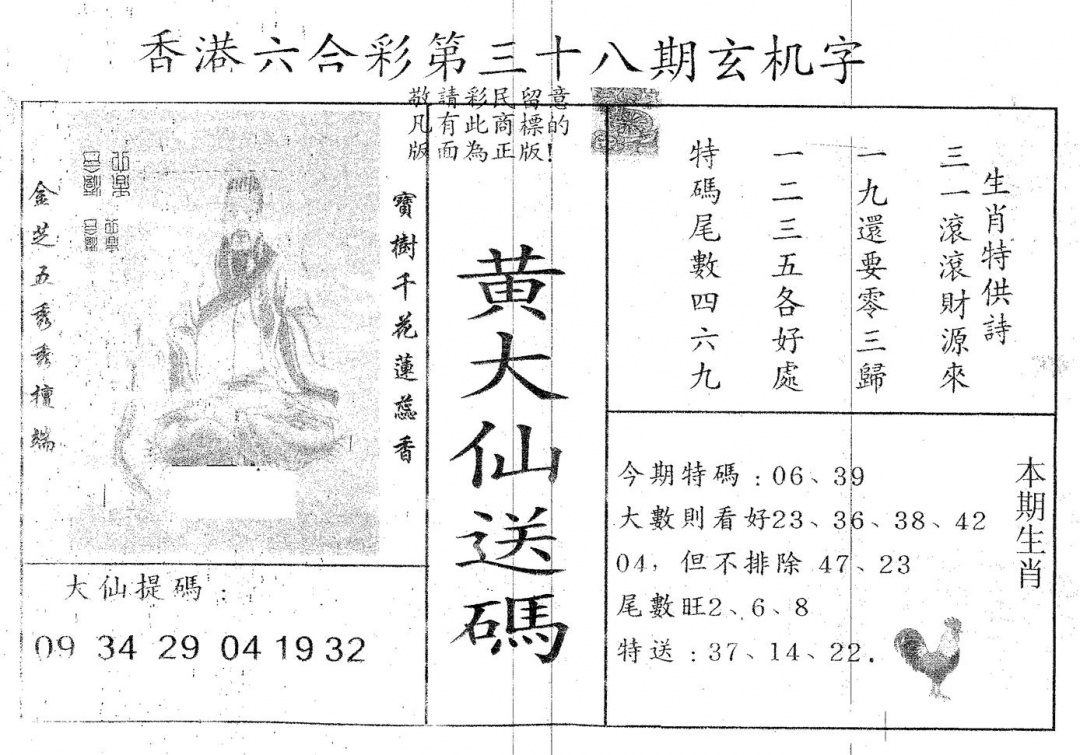 香港六合彩第三十八期玄机字
敬請彩民留意
凡有此商標的
版面為正版!
生肖特供詩
三一滾滾財源來
一九還要零三歸
一二三五各好處
特碼尾數四六九
寶樹千花蓮蕊香
金芝五秀秀擅端
黃大仙送碼
本期生肖
今期特碼：06、39
大數則看好23、36、38、42
04，但不排除 47、23
尾數旺2、6、8
特送：37、14、22.
大仙提碼：
09 34 29 04 19 32